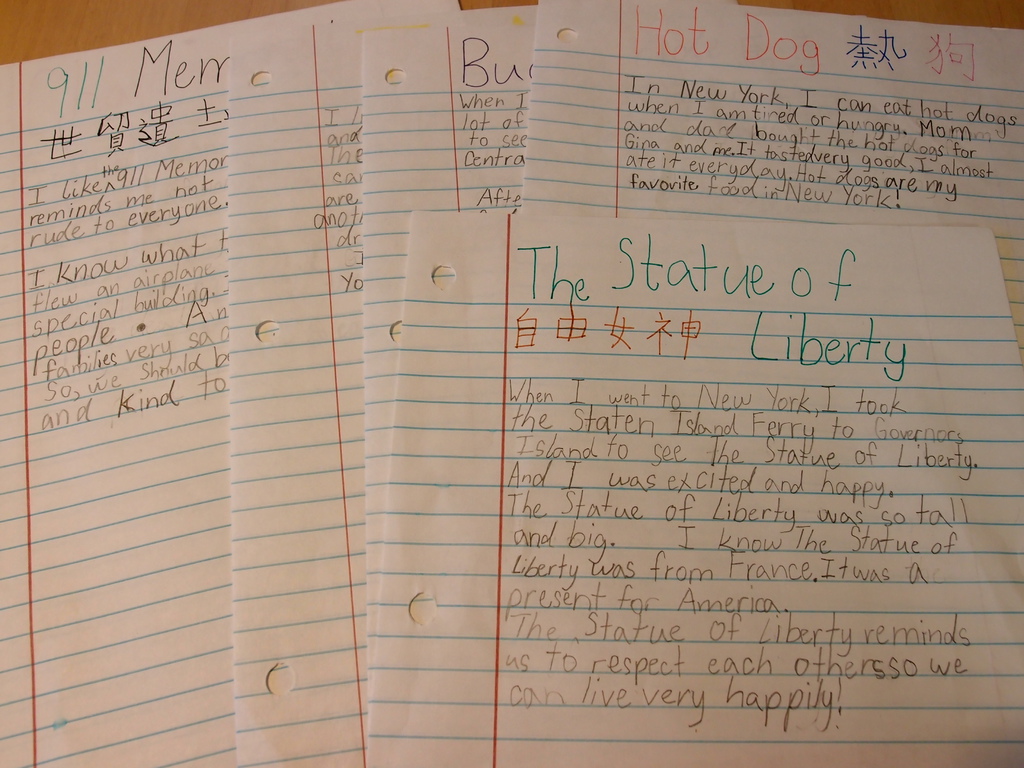 911 Mem
世貿遺
I like the 911 Memor
reminds me not
rude to everyone.
I know what t
flew an airplane
special building.
people. An
families very sa
So, we should b
and kind to
I l
and
The
sa
are
anot
dr
I
yo
Bu
When I
lot of
to see
Centra
Afte
Hot Dog 熱狗
In New York, I can eat hot dogs
when I am tired or hungry. Mom
and dad bought the hot dogs for
Gina and me. It tasted very good, I almost
ate it everyday. Hot dogs are my
favorite food in New York!
The Statue of
自由女神 Liberty
When I went to New York, I took
the Staten Island Ferry to Governors
Island to see The Statue of Liberty.
And I was excited and happy.
The Statue of Liberty was so tall
and big. I know The Statue of
Liberty was from France. It was a
present for America.
The Statue of Liberty reminds
us to respect each others so we
can live very happily!